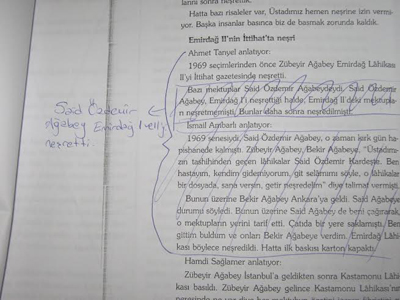 larını söylerdi.
Hatta bazı risaleler var, Üstadımız hemen neşrine izin vermi-
yor. Başka insanlar basınca biz de basmak zorunda kaldık.
Emirdağ II'nin İttihat'ta neşri
Ahmet Tanyel anlatıyor:
1969 seçimlerinden önce Zübeyir Ağabey Emirdağ Lâhikası
II'yi İttihat gazetesinde neşretti.
Bazı mektuplar Said Özdemir Ağabeydeydi. Said Özdemir
Ağabey, Emirdağ I'i neşrettiği halde, Emirdağ II'deki mektupla-
rı neşretmemişti. Bunlar daha sonra neşredilmişti.
İsmail Ambarlı anlatıyor:
1969 senesiydi, Said Özdemir Ağabey, o zaman kırk gün ha-
pishanede kalmıştı. Zübeyir Ağabey, Bekir Ağabeye, "Üstadımı-
zın tashihinden geçen lâhikalar Said Özdemir Kardeşte. Ben
hastayım, kendim gidemiyorum, git selâmımı söyle, o lâhikalar
bir dosyada, sana versin, getir neşredelim" diye talimat vermişti.
Bunun üzerine Bekir Ağabey Ankara'ya geldi. Said Ağabeye
durumu söyledi. Bunun üzerine Said Ağabey de beni çağırarak,
o mektupların yerini tarif etti. Çatıda bir yere saklamıştı. Ben
gittim buldum ve onları Bekir Ağabeye verdim. Emirdağ Lâhi-
kası böylece neşredildi. Hatta ilk baskısı karton kapaktı.
Hamdi Sağlamer anlatıyor:
Zübeyir Ağabey İstanbul'a geldikten sonra Kastamonu Lâhi-
kası basıldı. Zübeyir Ağabey gelince Kastamonu Lâhikası'nın
Said Özdemir
Ağabey Emirdağ
neşretti